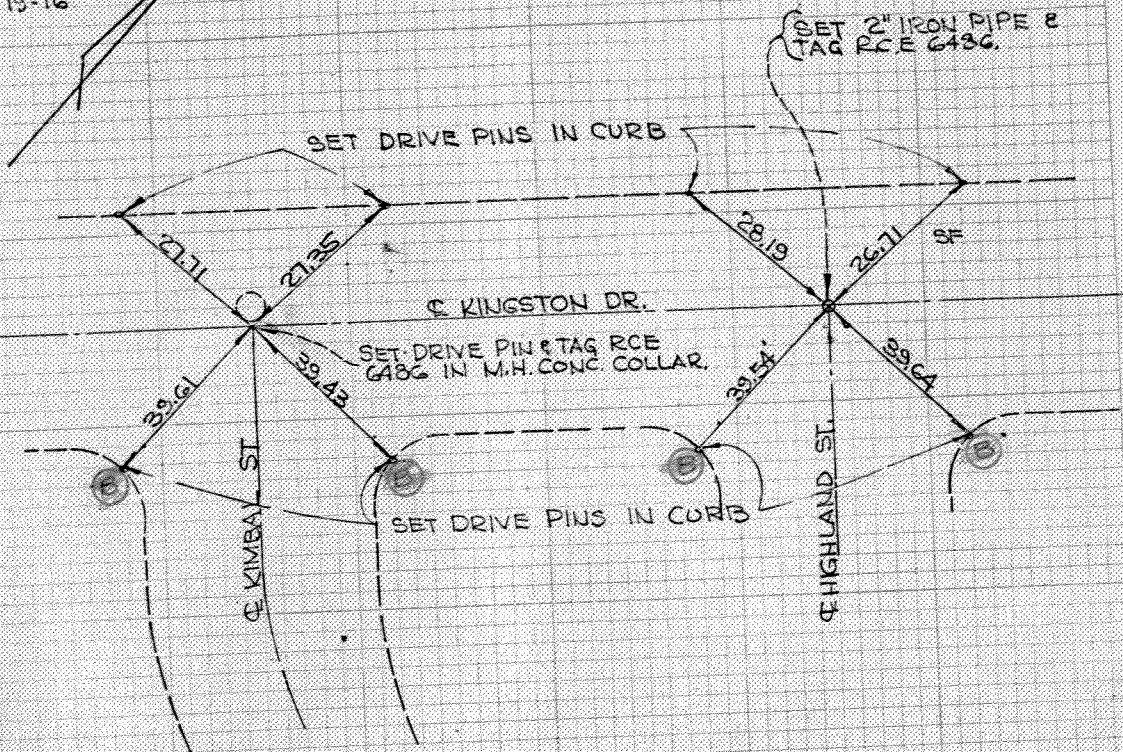 15-16
SET 2" IRON PIPE &
TAG R.C.E 6486.
SET DRIVE PINS IN CURB
27.71
27.35
28.19
26.71
SF
℄ KINGSTON DR.
SET DRIVE PIN & TAG RCE
6486 IN M.H. CONC. COLLAR.
39.61
39.43
39.54'
39.64
B
B
B
B
SET DRIVE PINS IN CURB
℄ KIMBAL ST
℄ HIGHLAND ST.